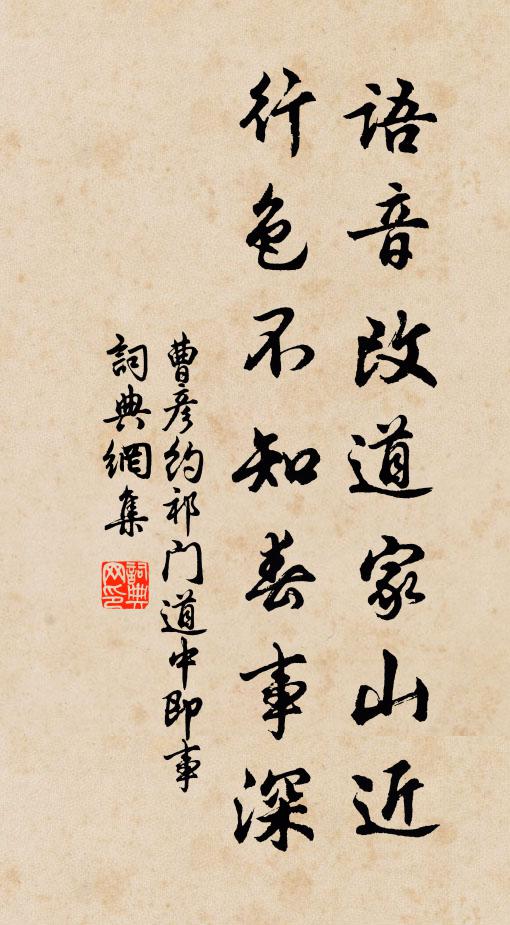 語音改道家山近
行色不知春事深
曹彦約祁门道中即事
詞典網集
詞典网印